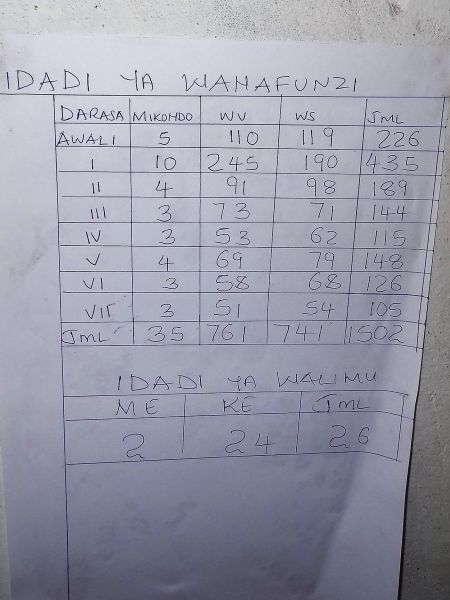 IDADI YA WANAFUNZI
DARASA MIKONDO WV WS JML
AWALI 5 110 119 226
I 10 245 190 435
II 4 91 98 189
III 3 73 71 144
IV 3 53 62 115
V 4 69 79 148
VI 3 58 68 126
VII 3 51 54 105
JML 35 761 741 1502
IDADI YA WALIMU
ME KE JML
2 24 26